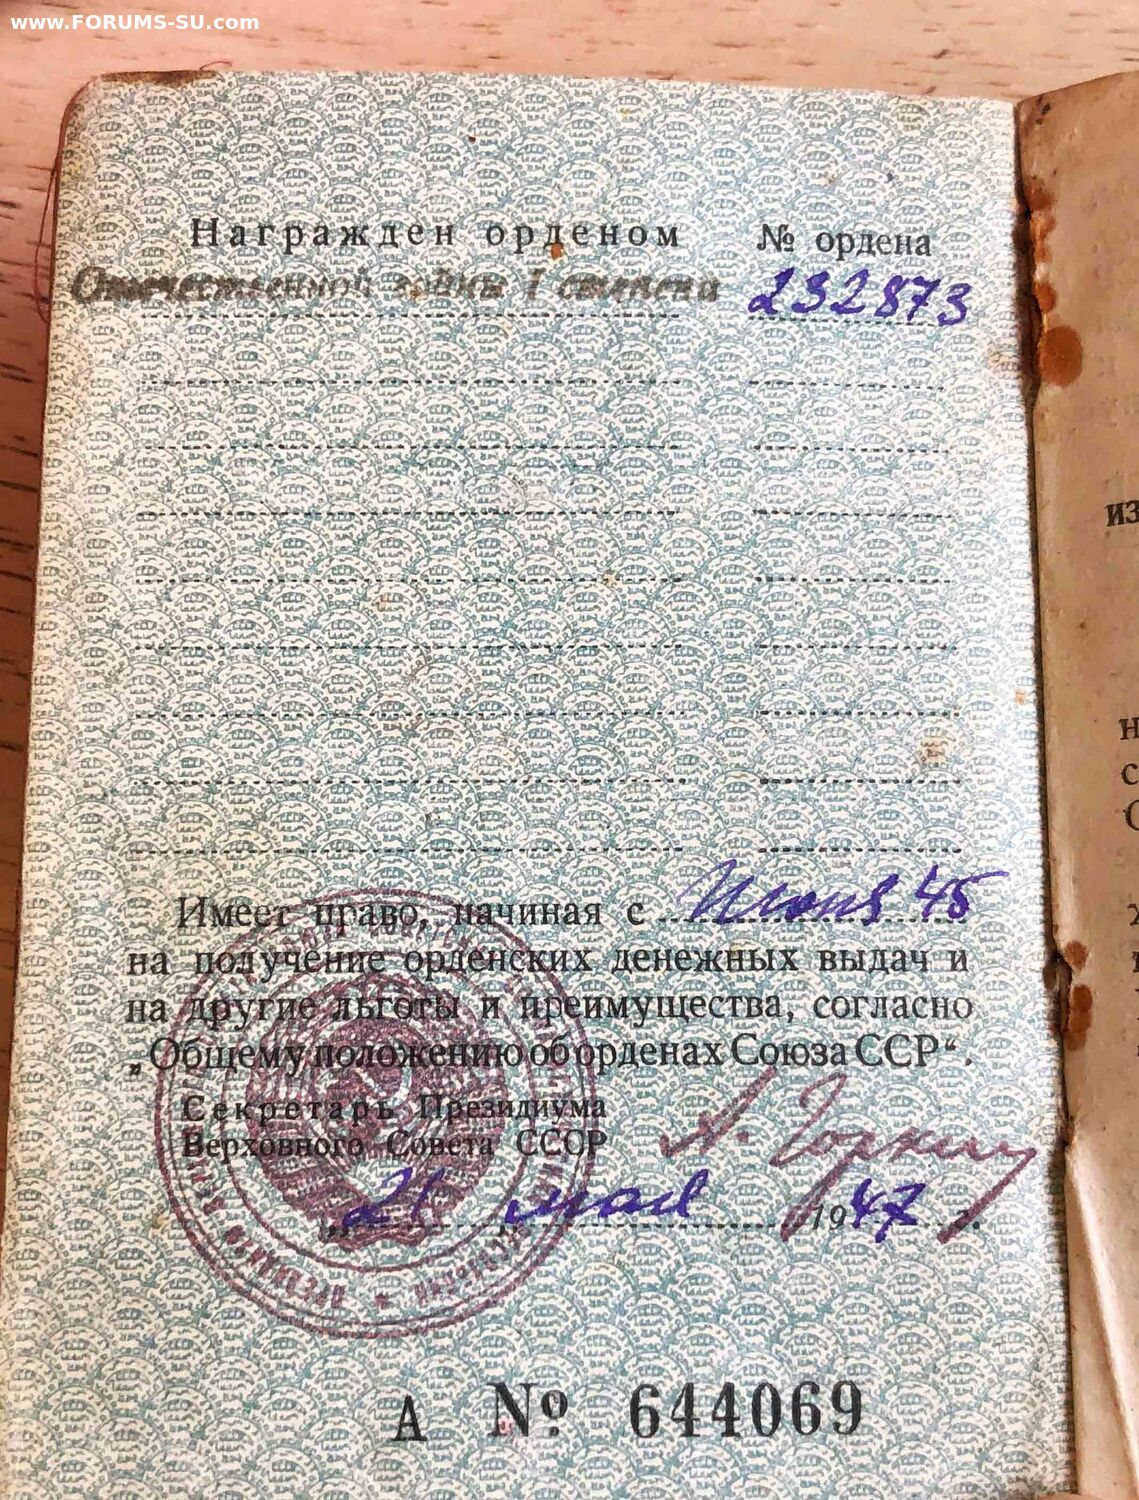 www.FORUMS-SU.com
Награжден орденом № ордена
Отечественной войны I степени 232873
Имеет право, начиная с Июня 45
на получение орденских денежных выдач и
на другие льготы и преимущества, согласно
„Общему положению об орденах Союза ССР“.
Секретарь Президиума
Верховного Совета СССР А. Горкин
„21 мая 1947 г.
А № 644069
из
н
с